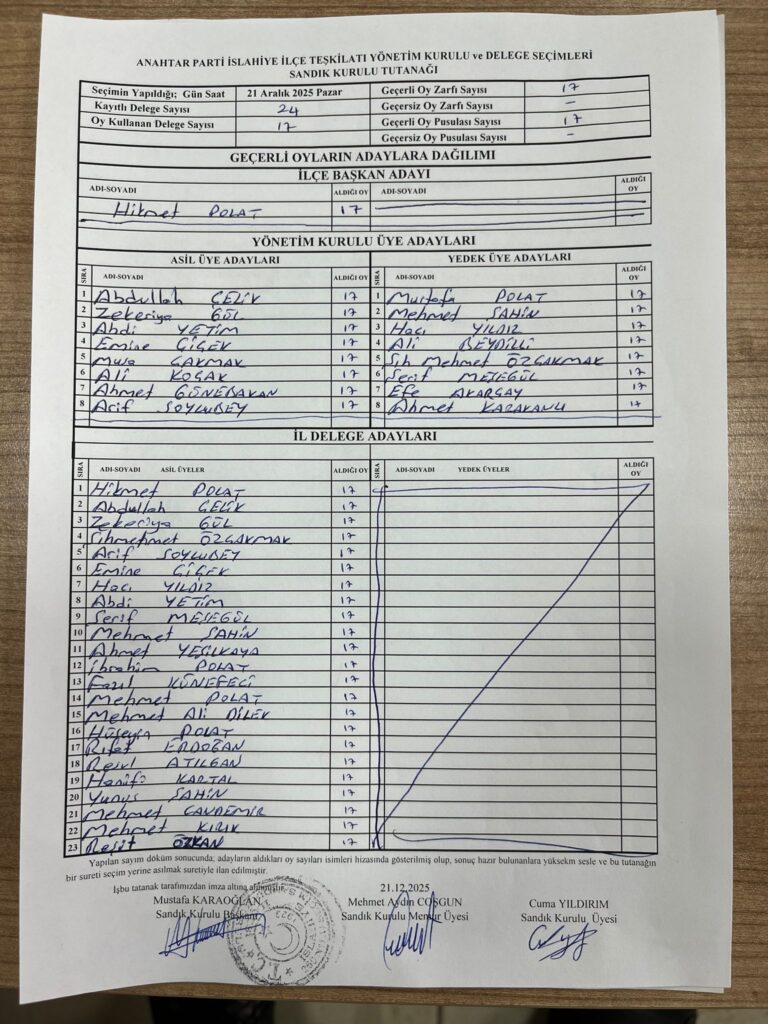 ANAHTAR PARTİ İSLAHİYE İLÇE TEŞKİLATI YÖNETİM KURULU ve DELEGE SEÇİMLERİ
SANDIK KURULU TUTANAĞI
Seçimin Yapıldığı; Gün Saat 21 Aralık 2025 Pazar Geçerli Oy Zarfı Sayısı 17
Kayıtlı Delege Sayısı 24 Geçersiz Oy Zarfı Sayısı -
Oy Kullanan Delege Sayısı 17 Geçerli Oy Pusulası Sayısı 17
Geçersiz Oy Pusulası Sayısı -
GEÇERLİ OYLARIN ADAYLARA DAĞILIMI
İLÇE BAŞKAN ADAYI
ADI-SOYADI ALDIĞI OY ADI-SOYADI ALDIĞI OY
Hikmet POLAT 17
YÖNETİM KURULU ÜYE ADAYLARI
ASİL ÜYE ADAYLARI YEDEK ÜYE ADAYLARI
SIRA ADI-SOYADI ALDIĞI OY SIRA ADI-SOYADI ALDIĞI OY
1 Abdullah ÇELİK 17 1 Mustafa POLAT 17
2 Zekeriya GÜL 17 2 Mehmet ŞAHİN 17
3 Abdi YETİM 17 3 Hacı YILDIZ 17
4 Emine ÇİÇEK 17 4 Ali BEYDİLLİ 17
5 Musa ÇAKMAK 17 5 Şıh Mehmet ÖZÇAKMAK 17
6 Ali KOÇAK 17 6 Şerif MEŞEGÜL 17
7 Ahmet GÜNEBAKAN 17 7 Efe AKARÇAY 17
8 Arif SOYLUBEY 17 8 Ahmet KARAKANLI 17
İL DELEGE ADAYLARI
SIRA ADI-SOYADI ASİL ÜYELER ALDIĞI OY SIRA ADI-SOYADI YEDEK ÜYELER ALDIĞI OY
1 Hikmet POLAT 17
2 Abdullah ÇELİK 17
3 Zekeriya GÜL 17
4 Şıhmehmet ÖZÇAKMAK 17
5 Arif SOYLUBEY 17
6 Emine ÇİÇEK 17
7 Hacı YILDIZ 17
8 Abdi YETİM 17
9 Şerif MEŞEGÜL 17
10 Mehmet ŞAHİN 17
11 Ahmet YEŞİLKAYA 17
12 İbrahim POLAT 17
13 Fazıl KÜNEFECİ 17
14 Mehmet POLAT 17
15 Mehmet Ali DİLEK 17
16 Hüseyin POLAT 17
17 Rıfat ERDOĞAN 17
18 Resul ATILGAN 17
19 Hanifi KARTAL 17
20 Yunus ŞAHİN 17
21 Mehmet CANDEMİR 17
22 Mehmet KIRIK 17
23 Reşit ÖZKAN 17
Yapılan sayım döküm sonucunda, adayların aldıkları oy sayıları isimleri hizasında gösterilmiş olup, sonuç hazır bulunanlara yüksekm sesle ve bu tutanağın
bir sureti seçim yerine asılmak suretiyle ilan edilmiştir.
İşbu tutanak tarafımızdan imza altına alınmıştır. 21.12.2025
Mustafa KARAOĞLAN Mehmet Aydın COŞGUN Cuma YILDIRIM
Sandık Kurulu Başkanı Sandık Kurulu Memur Üyesi Sandık Kurulu Üyesi
T.C.